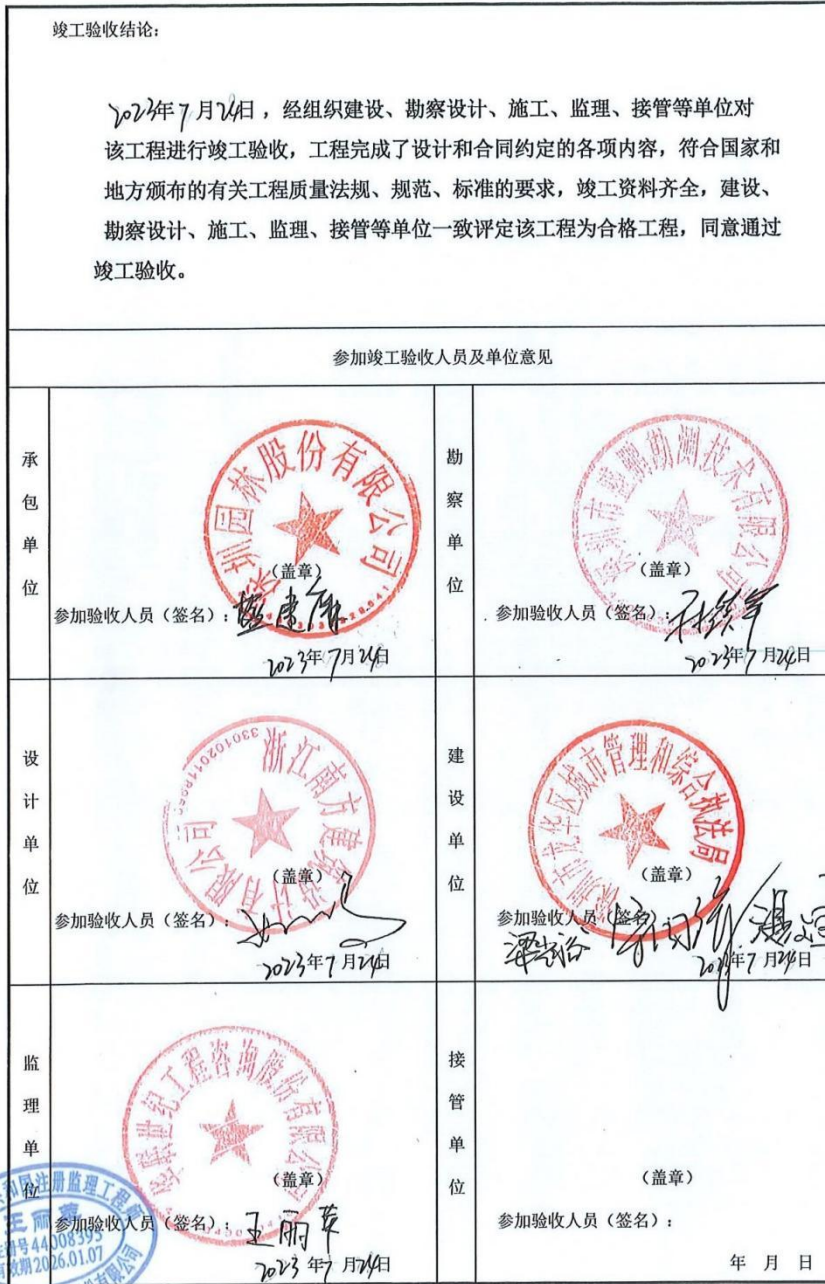 竣工验收结论:
2023年7月24日，经组织建设、勘察设计、施工、监理、接管等单位对
该工程进行竣工验收，工程完成了设计和合同约定的各项内容，符合国家和
地方颁布的有关工程质量法规、规范、标准的要求，竣工资料齐全，建设、
勘察设计、施工、监理、接管等单位一致评定该工程为合格工程，同意通过
竣工验收。
参加竣工验收人员及单位意见
承包单位
深圳园林股份有限公司
（盖章）
参加验收人员（签名）:
2023年7月24日
勘察单位
深圳市勘测技术有限公司
（盖章）
参加验收人员（签名）:
2023年7月24日
设计单位
浙江南方建筑设计有限公司
（盖章）
参加验收人员（签名）:
2023年7月24日
建设单位
深圳市龙华区城市管理和综合执法局
（盖章）
参加验收人员（签名）
2023年7月24日
监理单位
世纪工程咨询股份有限公司
（盖章）
参加验收人员（签名）: 王丽苹
2023年7月24日
注册监理工程师
44008393
2026.01.07
接管单位
（盖章）
参加验收人员（签名）:
年 月 日